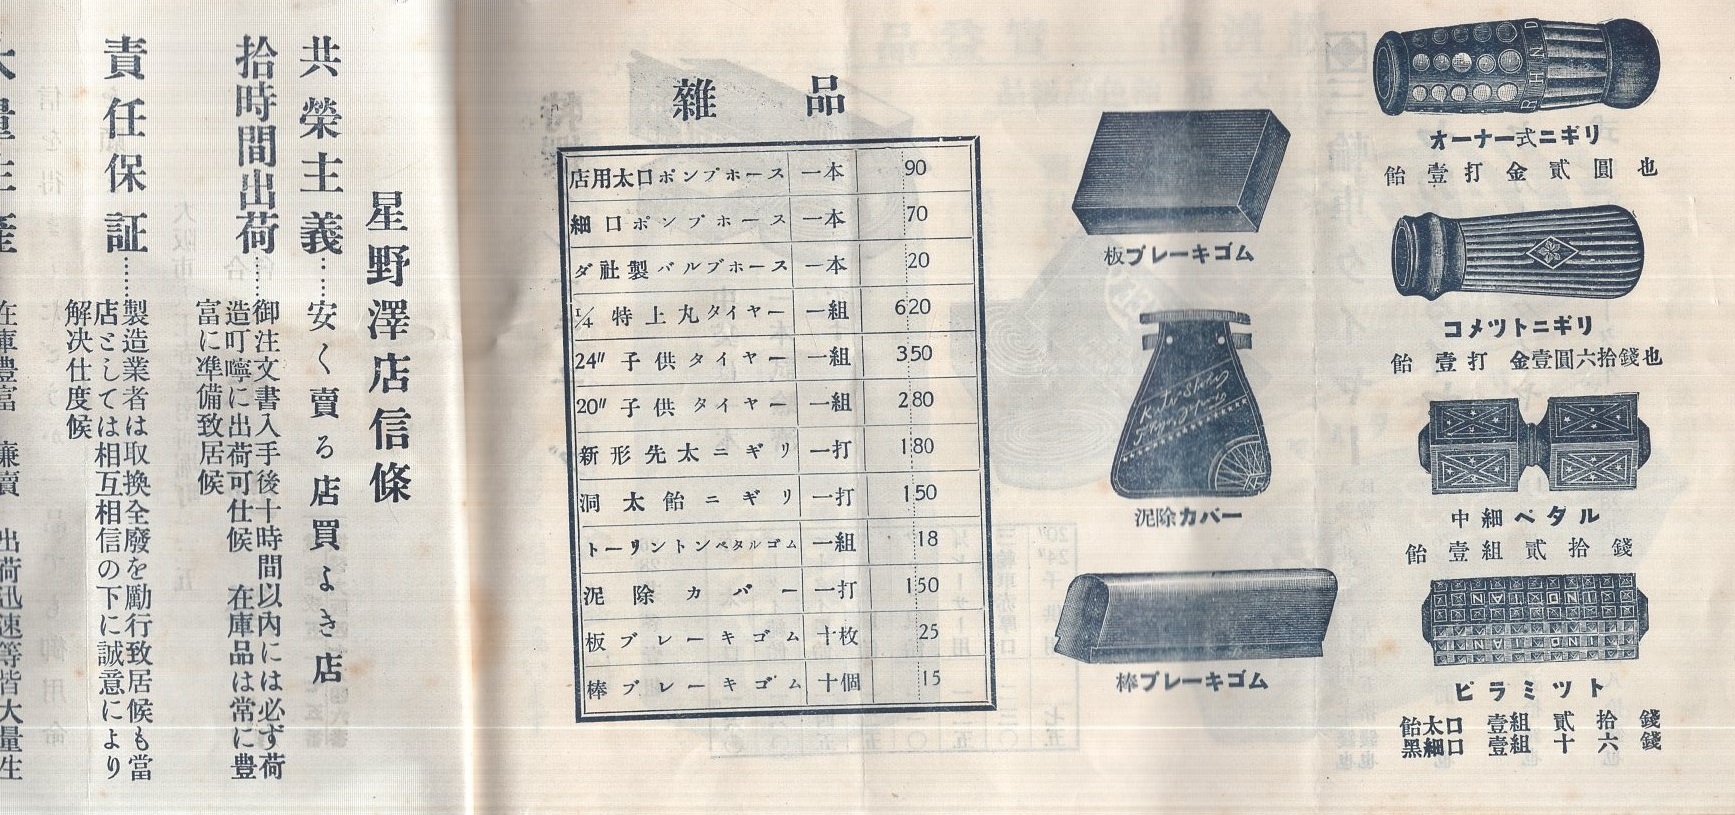 オーナー式ニギリ
飴 壹 打 金 貳 圓 也
コメツトニギリ
飴 壹 打 金壹圓六拾錢也
中細ペタル
飴 壹 組 貳 拾 錢
ピラミツト
飴太口 壹組 貳 拾 錢
黑細口 壹組 十 六 錢
板ブレーキゴム
泥除カバー
棒ブレーキゴム
雜品
店用太口ポンプホース 一本 90
細口ポンプホース 一本 70
ダ社製バルブホース 一本 20
1/4 特上丸タイヤー 一組 620
24" 子供タイヤー 一組 350
20" 子供タイヤー 一組 280
新形先太ニギリ 一打 180
洞太飴ニギリ 一打 150
トーリントンペタルゴム 一組 18
泥除カバー 一打 150
板ブレーキゴム 十枚 25
棒ブレーキゴム 十個 15
星野澤店信條
共榮主義……安く賣る店買よき店
拾時間出荷……御注文書入手後十時間以内には必ず荷
造叮嚀に出荷可仕候 在庫品は常に豊
富に準備致居候
責任保証……製造業者は取換全廢を勵行致居候も當
店としては相互相信の下に誠意により
解決仕度候
大量生産
在庫豊富 廉賣 出荷迅速等皆大量生